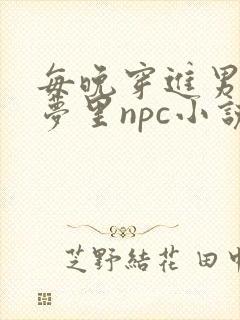 每晚穿進男
夢里npc小説
芝野結花 田中